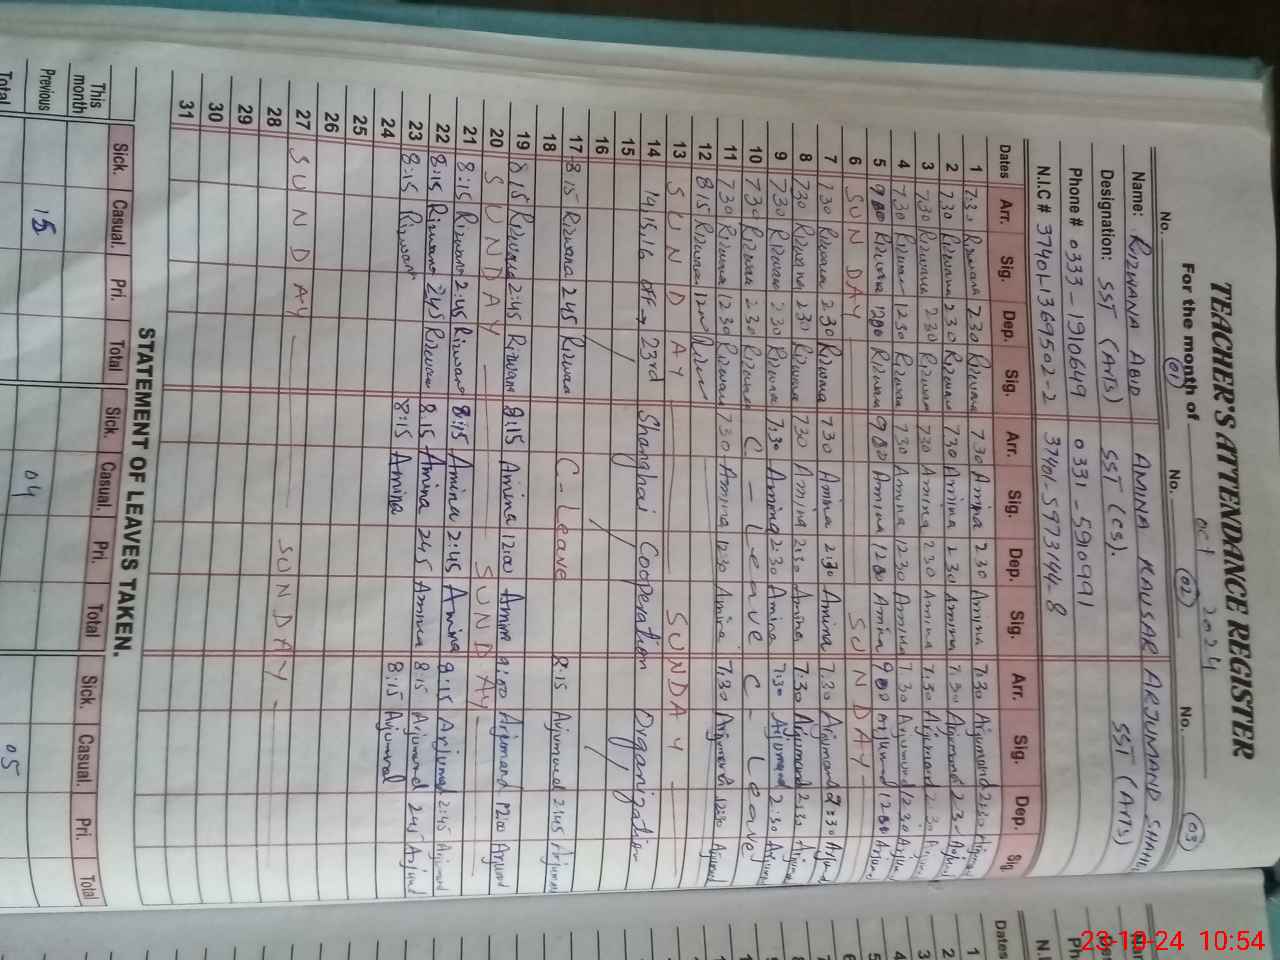 TEACHER'S ATTENDANCE REGISTER
For the month of oct 2024
No. (01) No. (02) No. (03)
Name: RIZWANA ABID AMINA KAUSAR ARJUMAND SHAHI
Designation: SST (Arts) SST (CS). SST (Arts)
Phone # 0333-1910649 0331-5910991
N.I.C # 37401-1369502-2 37401-5973144-8
Dates Arr. Sig. Dep. Sig. Arr. Sig. Dep. Sig. Arr. Sig. Dep. Sig.
1 7:30 Rizwana 2:30 Rizwana 730 Amina 2:30 Amina 7:30 Arjumand 2:30 Arjumand
2 7:30 Rizwana 2:30 Rizwana 730 Amina 2:30 Amina 7:30 Arjumand
3 7:30 Rizwana 230 Rizwana 730 Amina 230 Amina 7:30 Arjumand 2:30
4 7:30 Rizwana 1230 Rizwana 730 Amina 1230 Amina 7:30 Arjumand 1230
5 900 Rizwana 1200 Rizwana 900 Amina 1200 Amina 900 Arjumand 1200
6 SUNDAY SUNDAY
7 730 Rizwana 230 Rizwana 730 Amina 2:30 Amina 7:30 Arjumand 2:30
8 730 Rizwana 230 Rizwana 730 Amina 2:30 Amina 7:30 Arjumand 2:30
9 730 Rizwana 230 Rizwana 7:30 Amina 2:30 Amina 7:30 Arjumand 2:30
10 730 Rizwana 230 Rizwana C - Leave C - Leave
11 730 Rizwana 1230 Rizwana 730 Amina 1230 Amina 7:30 Arjumand 12:30
12 815 Rizwana
13 SUNDAY SUNDAY
14 14,15,16 off → 23rd Shanghai Cooperation Organization
15
16
17 8:15 Rizwana 245 Rizwana C-Leave 8:15 Arjumand 2:45 Arjumand
18
19 815 Rizwana 2:45 Rizwana 8:15 Amina 12:00 Amina 9:00 Arjumand 12:00 Arjumand
20 SUNDAY SUNDAY
21 8:15 Rizwana 2:45 Rizwana 8:15 Amina 2:45 Amina 8:15 Arjumand 2:45 Arjumand
22 8:15 Rizwana 245 Rizwana 8:15 Amina 245 Amina 8:15 Arjumand 245 Arjumand
23 8:15 Rizwana 8:15 Amina 8:15 Arjumand
24
25
26
27 SUNDAY SUNDAY
28
29
30
31
STATEMENT OF LEAVES TAKEN.
Sick. Casual. Pri. Total Sick. Casual. Pri. Total Sick. Casual. Pri. Total
This month
Previous 15 04 05
Total
Dates
1
2
3
4
5
6
23-10-24 10:54